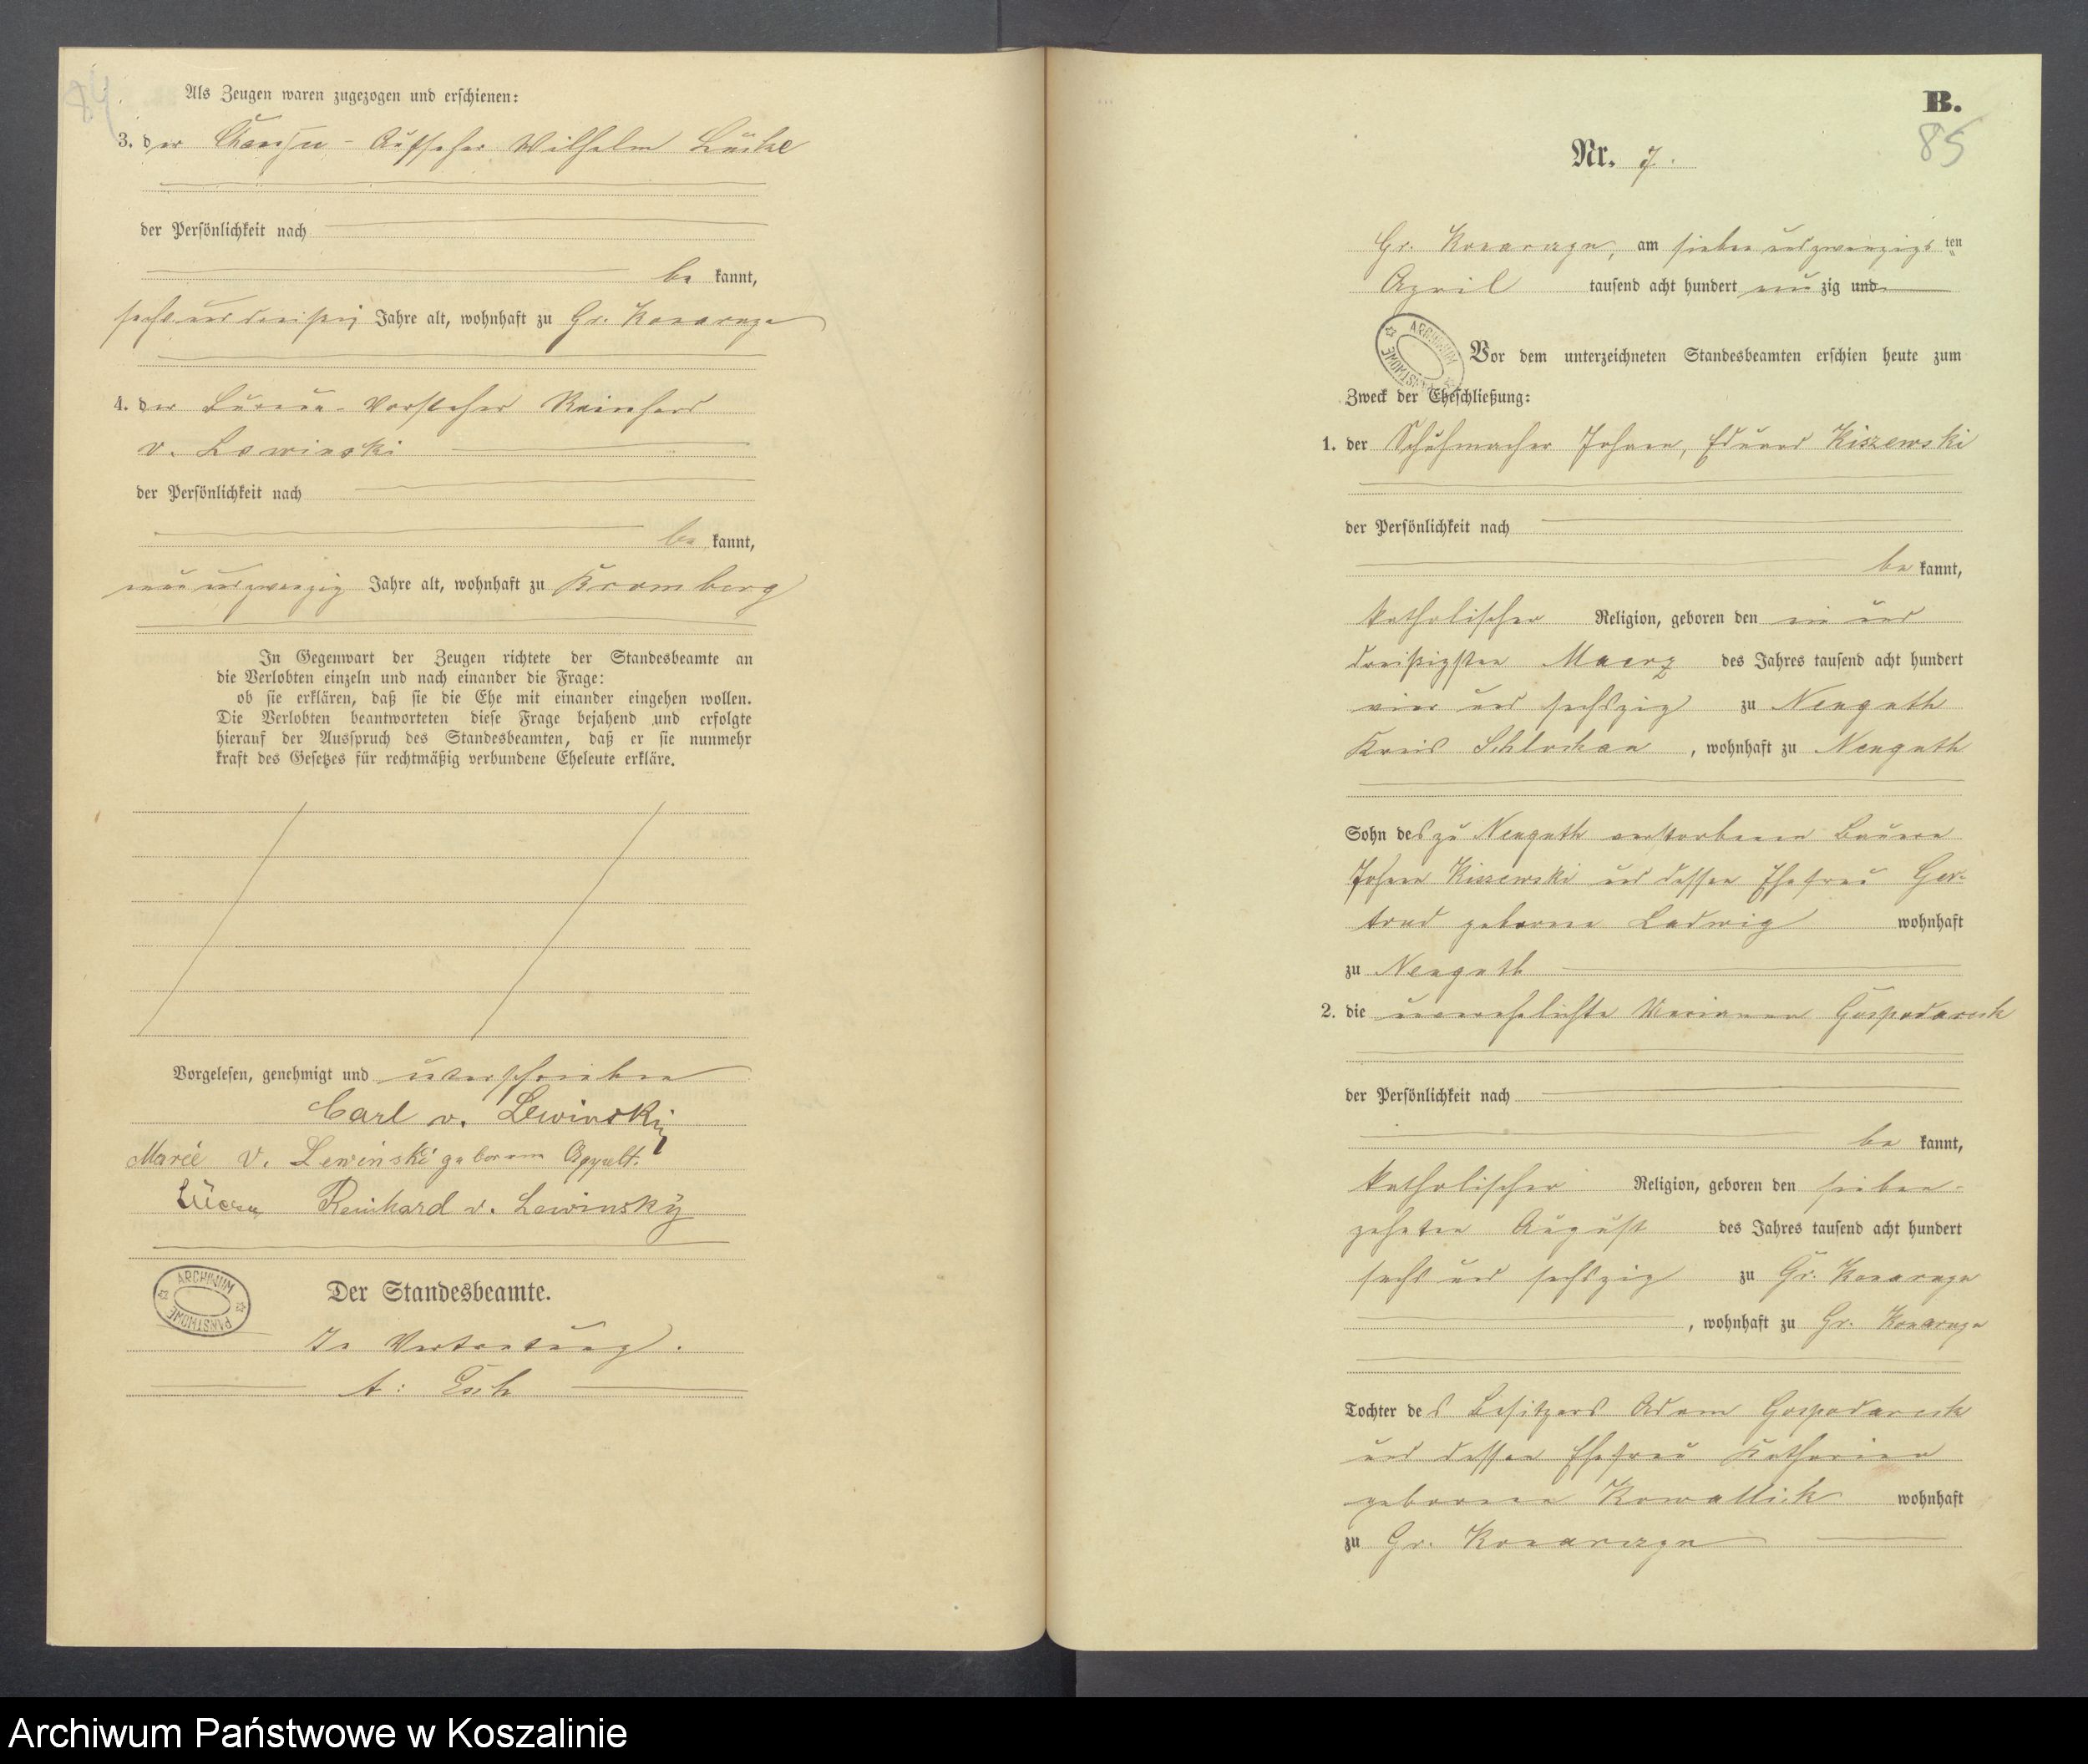 84
Als Zeugen waren zugezogen und erschienen:
3. der Chaussee-Aufseher Wilhelm
der Persönlichkeit nach
be kannt,
sechsunddreißig Jahre alt, wohnhaft zu Gr. Konarczyn
4. der Bureau-Vorsteher Reinhard
v. Lewinski
der Persönlichkeit nach
be kannt,
neunundzwanzig Jahre alt, wohnhaft zu Bromberg
In Gegenwart der Zeugen richtete der Standesbeamte an
die Verlobten einzeln und nach einander die Frage:
ob sie erklären, daß sie die Ehe mit einander eingehen wollen.
Die Verlobten beantworteten diese Frage bejahend und erfolgte
hierauf der Ausspruch des Standesbeamten, daß er sie nunmehr
kraft des Gesetzes für rechtmäßig verbundene Eheleute erkläre.
Vorgelesen, genehmigt und unterschrieben
Carl v. Lewinski
Marie v. Lewinski geborene
Reinhard v. Lewinsky
ARCHIWUM PAŃSTWOWE
Der Standesbeamte.
In Vertretung.
B.
85
Nr. 7.
Gr. Konarczyn, am sieben und zwanzigs ten
April tausend acht hundert neun zig und
ARCHIWUM PAŃSTWOWE
Vor dem unterzeichneten Standesbeamten erschien heute zum
Zweck der Eheschließung:
1. der Schuhmacher Johann, Eduard Kiszewski
der Persönlichkeit nach
be kannt,
katholischer Religion, geboren den ein und
dreißigsten Maerz des Jahres tausend acht hundert
vier und sechszig zu Neuguth
Kreis Schlochau, wohnhaft zu Neuguth
Sohn des zu Neuguth verstorbenen Bauern
Johann Kiszewski und dessen Ehefrau Ger-
trud geborene Ladwig wohnhaft
zu Neuguth
2. die unverehelichte Marianna Gospodareck
der Persönlichkeit nach
be kannt,
katholischer Religion, geboren den sieben-
zehnten August des Jahres tausend acht hundert
sechs und sechszig zu Gr. Konarczyn
, wohnhaft zu Gr. Konarczyn
Tochter des Besitzers Adam Gospodareck
und dessen Ehefrau Katharina
geborene Kowallick wohnhaft
zu Gr. Konarczyn
Archiwum Państwowe w Koszalinie